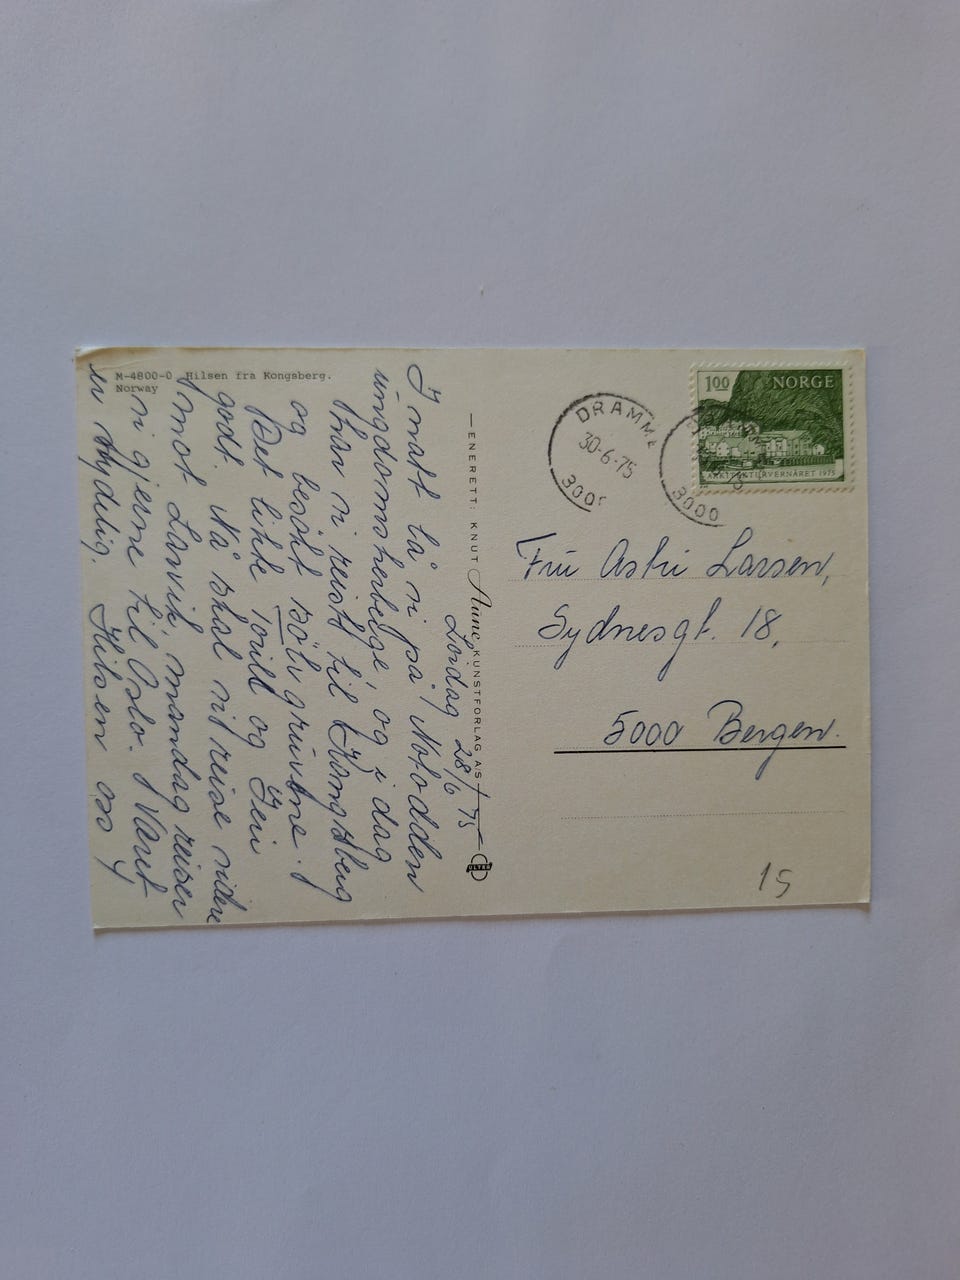 M-4800-0 Hilsen fra Kongsberg.
Norway
Lördag 28/6 - 75
I natt lå vi på Notodden
ungdomsherberge og i dag
har vi reist til Kongsberg
og besökt sölvgruvene.
Det likte vill og Geir
godt. Nå skal vi reise videre
imot Larvik, mandag reiser
vi gjerne til Oslo. Været
er nydelig. Hilsen oss 4
ENERETT: KNUT Aune KUNSTFORLAG A/S
ULTRA
DRAMME
30-6-75
3000
3000
1.00 NORGE
ARKITEKTURVERNÅRET 1975
Fru Astri Larsen,
Sydnesgt. 18,
5000 Bergen.
15